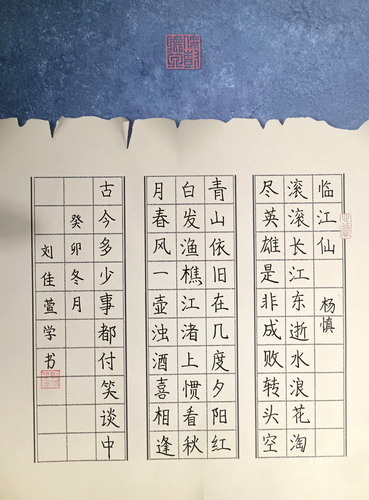 临江仙 杨慎
滚滚长江东逝水浪花淘
尽英雄是非成败转头空
青山依旧在几度夕阳红
白发渔樵江渚上惯看秋
月春风一壶浊酒喜相逢
古今多少事都付笑谈中
癸卯冬月
刘佳萱学书